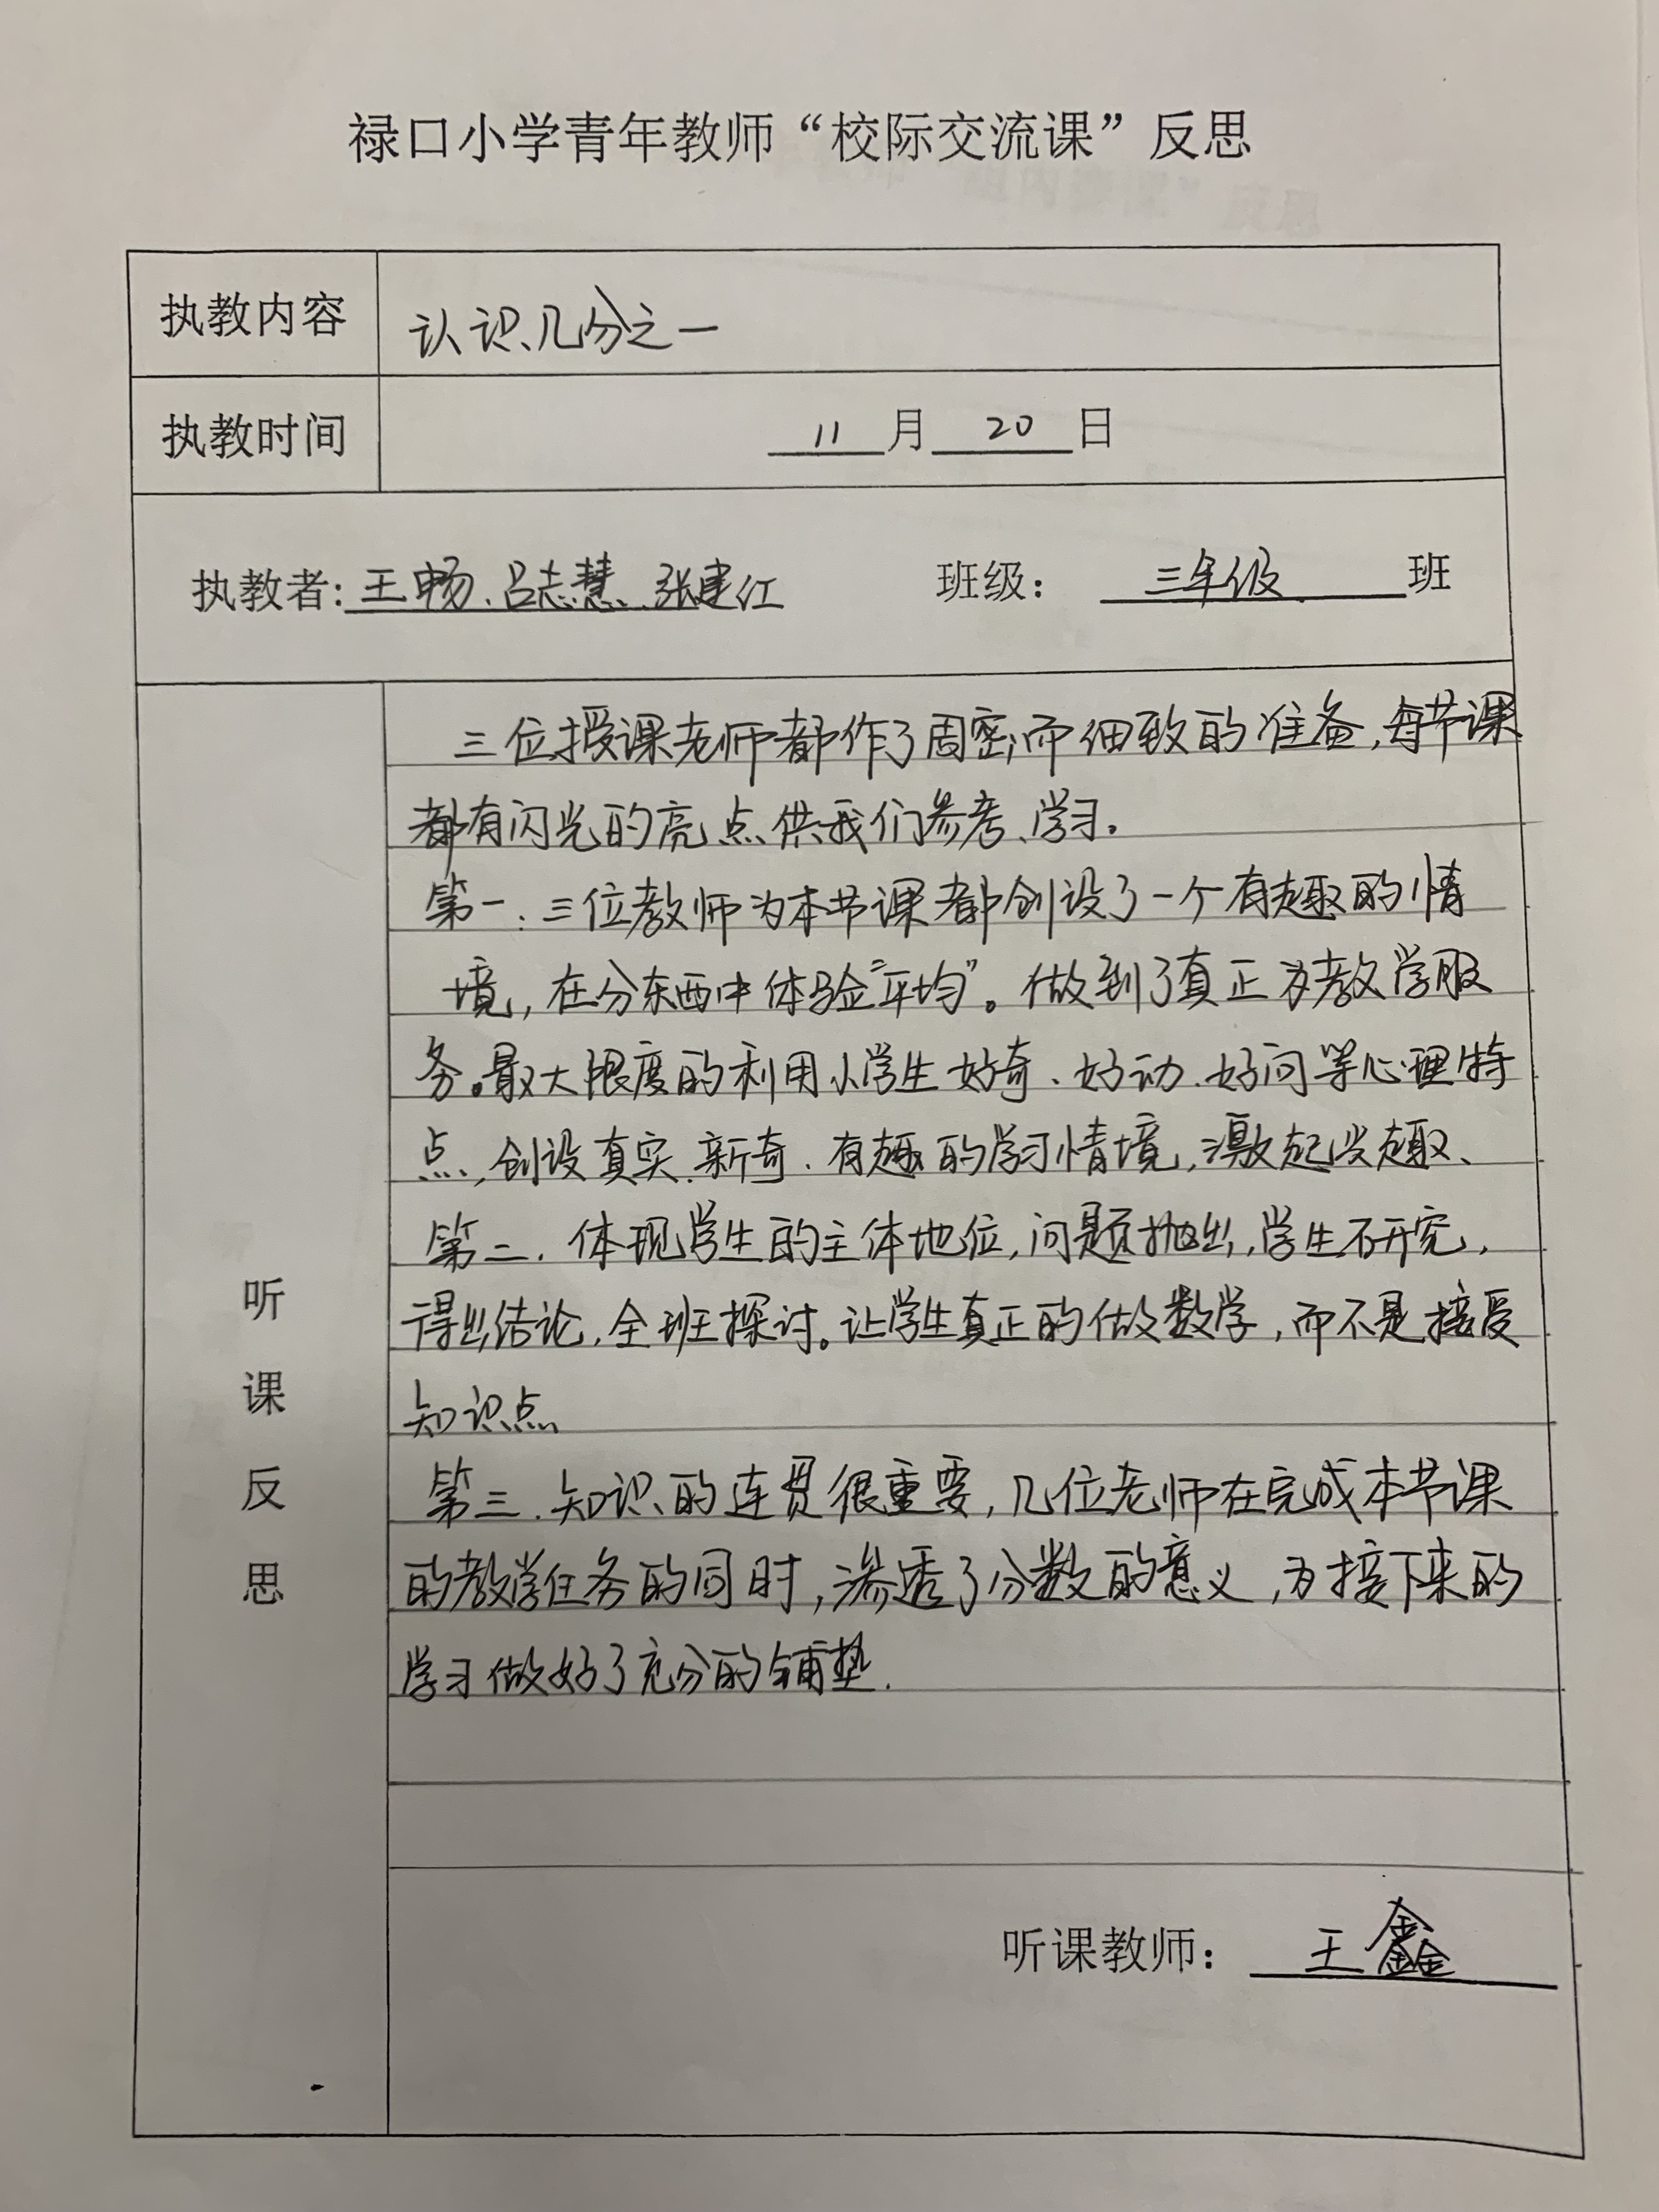 禄口小学青年教师“校际交流课”反思
执教内容 认识几分之一
执教时间 11月20日
执教者:王畅、吕志慧、张建红 班级：三年级班
听课反思
三位授课老师都作了周密而细致的准备,每节课
都有闪光的亮点供我们参考、学习。
第一：三位教师为本节课都创设了一个有趣的情
境,在分东西中体验“平均”。做到了真正为教学服
务。最大限度的利用小学生好奇、好动、好问等心理特
点,创设真实、新奇、有趣的学习情境,激起兴趣、
第二、体现学生的主体地位,问题抛出,学生研究,
得出结论,全班探讨。让学生真正的做数学,而不是接受
知识点
第三、知识的连贯很重要,几位老师在完成本节课
的教学任务的同时,渗透了分数的意义,为接下来的
学习做好了充分的铺垫.
听课教师：王鑫